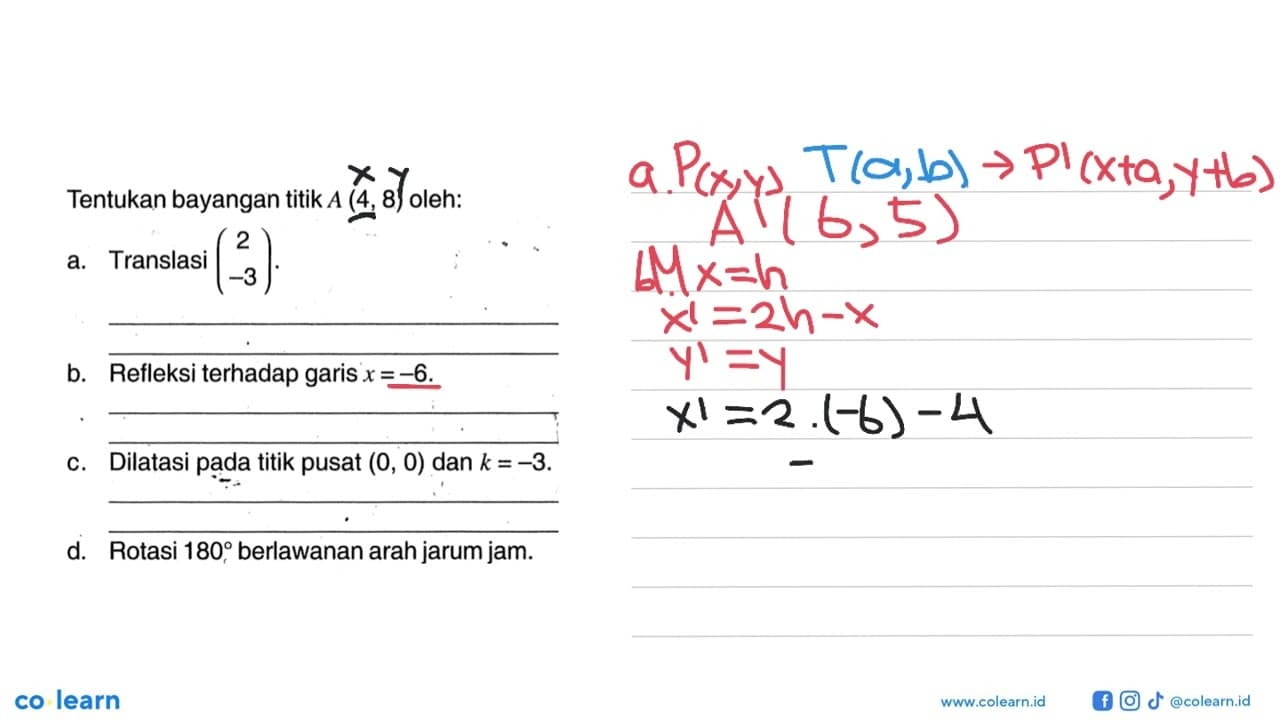 x y
Tentukan bayangan titik A (4, 8) oleh:
a. Translasi (2
–3).
b. Refleksi terhadap garis x = –6.
c. Dilatasi pada titik pusat (0, 0) dan k = –3.
d. Rotasi 180° berlawanan arah jarum jam.
a. P(x,y) T(a,b) → P'(x+a, y+b)
A'(6,5)
b. M x=h
x' = 2h-x
y' = y
x' = 2.(-6) - 4
-
co learn
www.colearn.id
@colearn.id